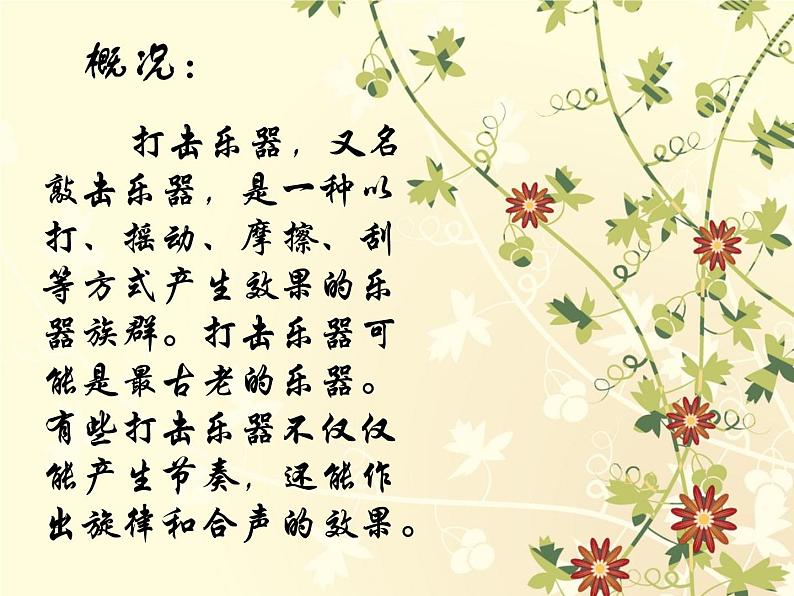 概况：
打击乐器，又名
敲击乐器，是一种以
打、摇动、摩擦、刮
等方式产生效果的乐
器族群。打击乐器可
能是最古老的乐器。
有些打击乐器不仅仅
能产生节奏，还能作
出旋律和合声的效果。